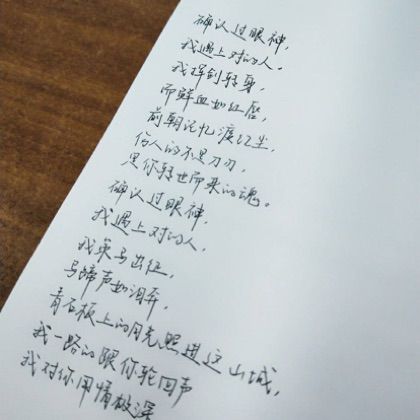 确认过眼神,
我遇上对的人。
我挥剑转身,
而鲜血如红唇,
前朝记忆渡红尘,
伤人的不是刀刃,
是你转世而来的魂。
确认过眼神,
我遇上对的人,
我策马出征,
马蹄声如泪奔,
青石板上的月光照进这山城,
我一路的跟你轮回声
我对你用情极深